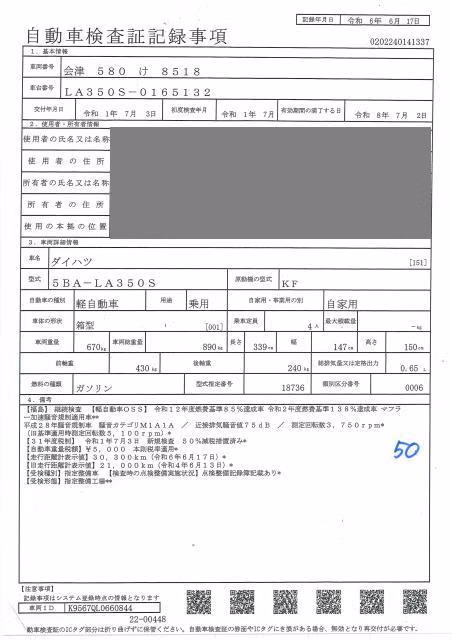 記録年月日 令和 6年 6月 17日
自動車検査証記録事項
0202240141337
1. 基本情報
車両番号 会津 580 け 8518
車台番号 LA350S-0165132
交付年月日 令和 1年 7月 3日 初度検査年月 令和 1年 7月 有効期間の満了する日 令和 8年 7月 2日
2. 使用者・所有者情報
使用者の氏名又は名称
使用者の住所
所有者の氏名又は名称
所有者の住所
使用の本拠の位置
3. 車両詳細情報
車名 ダイハツ [151]
型式 5BA-LA350S 原動機の型式 KF
自動車の種別 軽自動車 用途 乗用 自家用・事業用の別 自家用
車体の形状 箱型 [001] 乗車定員 4人 最大積載量 -kg
車両重量 670kg 車両総重量 890kg 長さ 339cm 幅 147cm 高さ 150cm
前軸重 430kg 後軸重 240kg 総排気量又は定格出力 0.65 L
燃料の種類 ガソリン 型式指定番号 18736 類別区分番号 0006
4. 備考
【福島】 継続検査 【軽自動車OSS】 令和12年度燃費基準85%達成車 令和2年度燃費基準138%達成車 マフラ
ー加速騒音規制適用車**
平成28年騒音規制車 騒音カテゴリM1A1A / 近接排気騒音値75dB / 測定回転数3,750rpm*
(旧基準適用時測定回転数5,100rpm)*
【31年度税制】 令和1年7月3日 新規検査 50%減税措置済み*
【自動車重量税額】¥5,000 本則税率適用*
【走行距離計表示値】30,300km(令和6年6月17日)*
【旧走行距離計表示値】21,000km(令和4年6月13日)*
【受検種別】指定整備車 【検査時の点検整備実施状況】点検整備記録簿記載あり*
【受検形態】指定整備工場**
50
【注意事項】
記録事項はシステム登録時点の情報となります
車両ID K9567QL0660844
22-00448
自動車検査証のICタグ部分は折り曲げずに保管ください。自動車検査証の券面やICタグにき損がある場合、無効となり再交付が必要です。